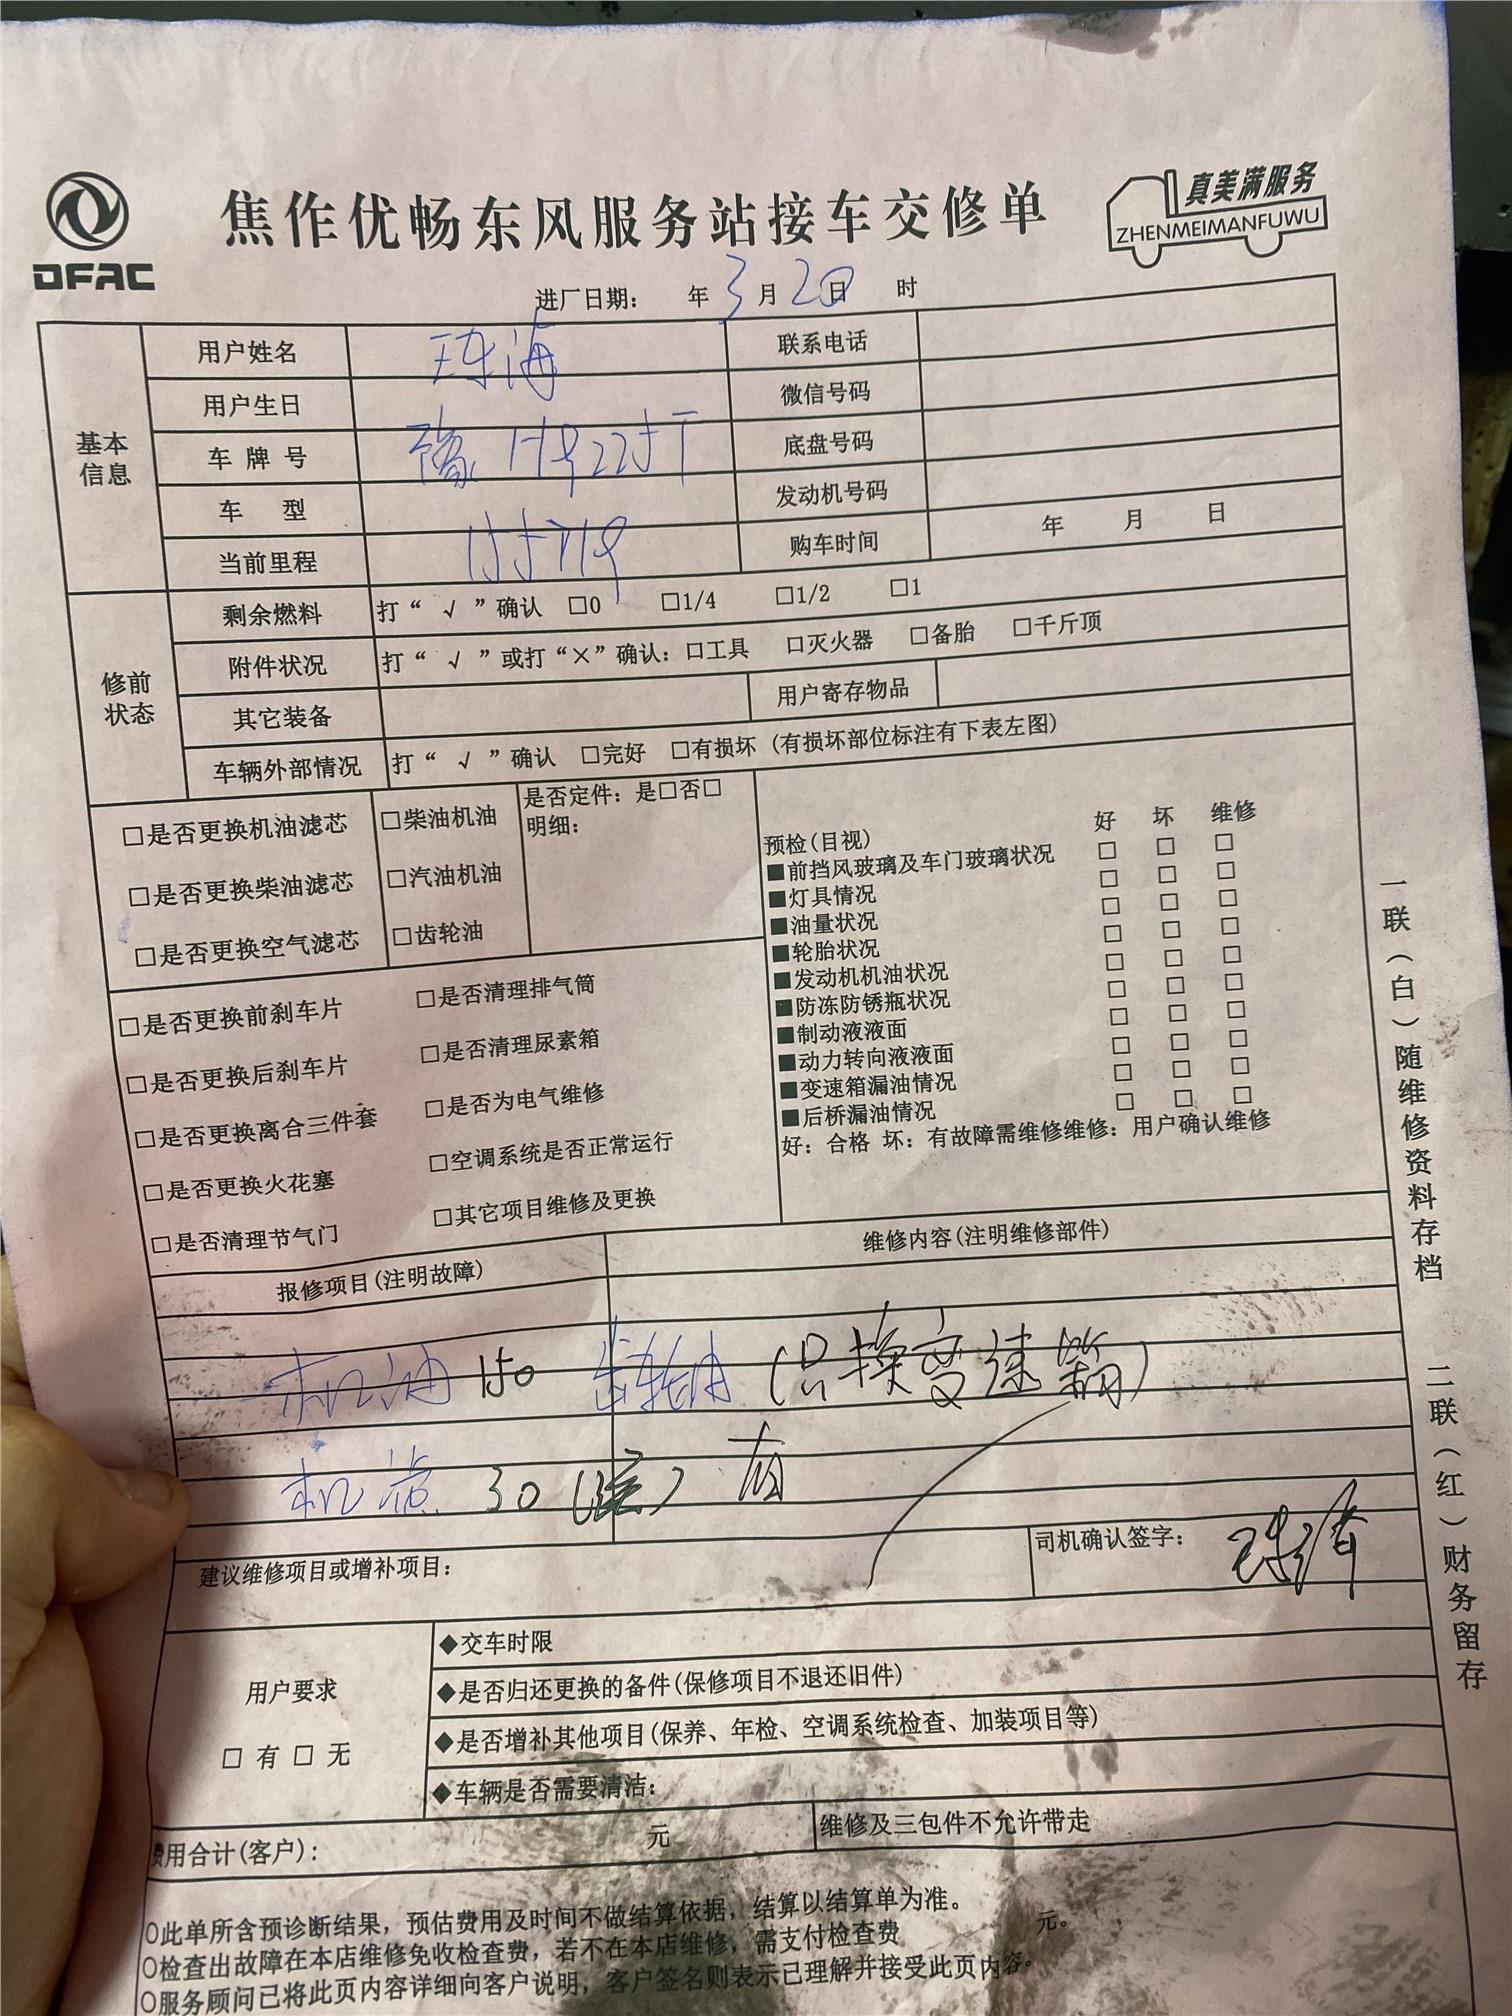 DFAC
焦作优畅东风服务站接车交修单
真美满服务
ZHENMEIMANFUWU
进厂日期: 年 3 月 20 日 时
基本信息
用户姓名 联系电话
用户生日 微信号码
车牌号 豫H9225T 底盘号码
车型 发动机号码
当前里程 155719 购车时间 年 月 日
修前状态
剩余燃料 打“√”确认 □0 □1/4 □1/2 □1
附件状况 打“√”或打“×”确认: □工具 □灭火器 □备胎 □千斤顶
其它装备 用户寄存物品
车辆外部情况 打“√”确认 □完好 □有损坏 (有损坏部位标注有下表左图)
□是否更换机油滤芯 □柴油机油
□是否更换柴油滤芯 □汽油机油
□是否更换空气滤芯 □齿轮油
是否定件: 是□否□
明细:
□是否更换前刹车片 □是否清理排气筒
□是否更换后刹车片 □是否清理尿素箱
□是否更换离合三件套 □是否为电气维修
□是否更换火花塞 □空调系统是否正常运行
□是否清理节气门 □其它项目维修及更换
预检(目视) 好 坏 维修
■前挡风玻璃及车门玻璃状况 □ □ □
■灯具情况 □ □ □
■油量状况 □ □ □
■轮胎状况 □ □ □
■发动机机油状况 □ □ □
■防冻防锈瓶状况 □ □ □
■制动液液面 □ □ □
■动力转向液液面 □ □ □
■变速箱漏油情况 □ □ □
■后桥漏油情况 □ □ □
好: 合格 坏: 有故障需维修维修: 用户确认维修
报修项目(注明故障) 维修内容(注明维修部件)
机油 150 齿轮油 (只换变速箱)
机滤 30
建议维修项目或增补项目:
司机确认签字:
用户要求
□ 有 □ 无
◆交车时限
◆是否归还更换的备件(保修项目不退还旧件)
◆是否增补其他项目(保养、年检、空调系统检查、加装项目等)
◆车辆是否需要清洁:
费用合计(客户): 元 维修及三包件不允许带走
○此单所含预诊断结果, 预估费用及时间不做结算依据, 结算以结算单为准。
○检查出故障在本店维修免收检查费, 若不在本店维修, 需支付检查费 元。
○服务顾问已将此页内容详细向客户说明, 客户签名则表示已理解并接受此页内容。
一联(白)随维修资料存档 二联(红)财务留存